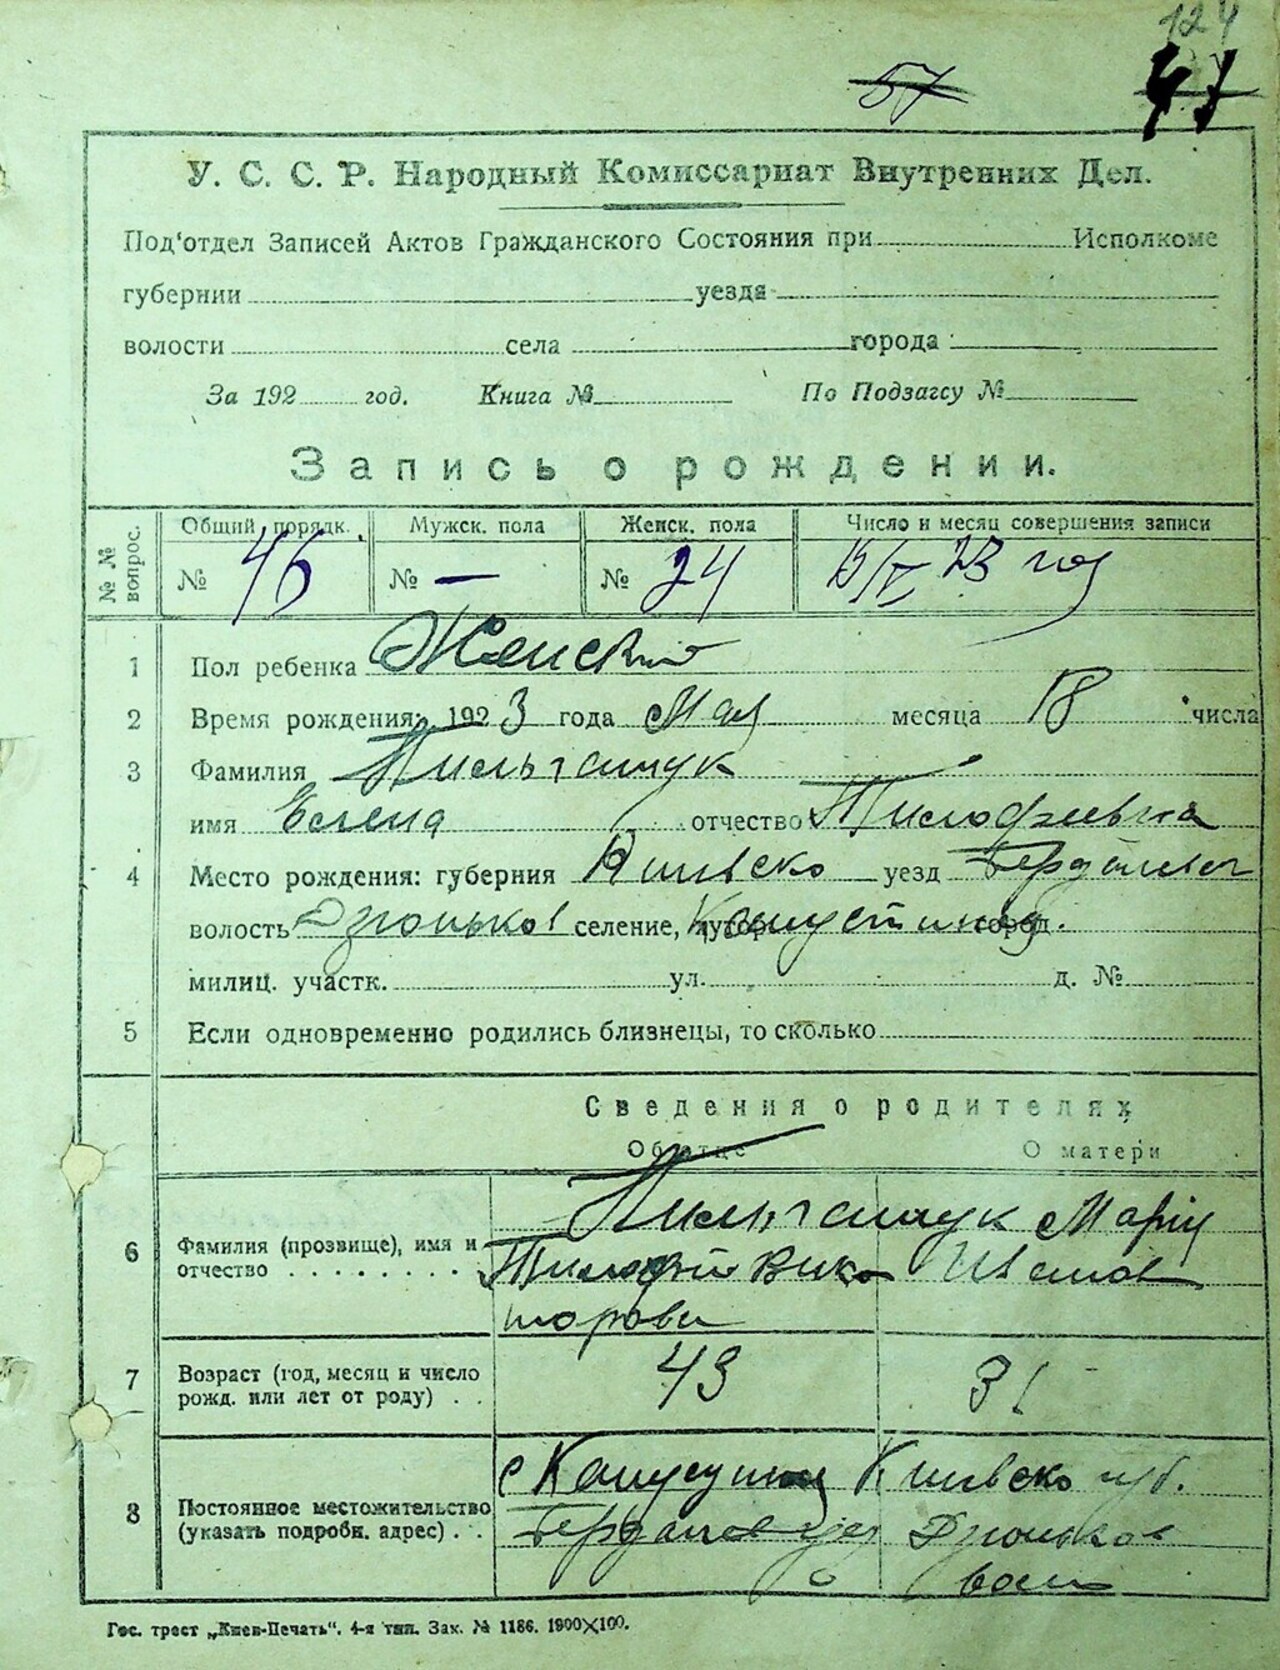 124
57
47
У. С. С. Р. Народный Комиссариат Внутренних Дел.
Под'отдел Записей Актов Гражданского Состояния при Исполкоме
губернии уезда
волости села города
За 192 год. Книга № По Подзагсу №
Запись о рождении.
№ № вопрос. Общий порядк. Мужск. пола Женск. пола Число и месяц совершения записи
№ 46 № — № 24 23 год
1 Пол ребенка Женский
2 Время рождения: 1923 года Мая месяца 18 числа
3 Фамилия
имя Елена отчество Тимофеевна
4 Место рождения: губерния Киевско уезд Бердичев
волость Дзюньков селение, хутор город.
милиц. участк. ул. д. №
5 Если одновременно родились близнецы, то сколько
Сведения о родителях
Об отце О матери
6 Фамилия (прозвище), имя и Марія
отчество Тимофей Вик Иванов
торови
7 Возраст (год, месяц и число 43 31
рожд. или лет от роду)
с Киевско губ.
8 Постоянное местожительство
(указать подробн. адрес) Бердичев уезд Дзюньков
вол
Гос. трест „Киев-Печать“. 4-я тип. Зак. № 1186. 1900×100.